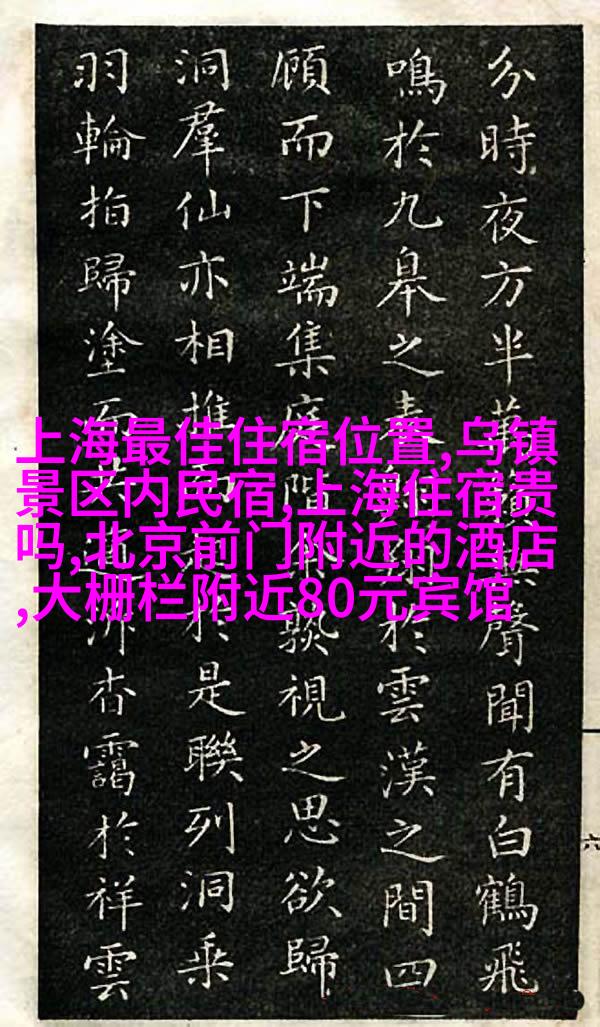 上海最佳住宿位置,乌镇
景区内民宿,上海住宿贵
吗,北京前门附近的酒店
,大栅栏附近80元宾馆
分時夜方半聲聞有白鶴飛
鳴於九皋之於雲漢之間四
顧而下端集庭視之思欲歸
洞羣仙亦相推於是聯列洞乘
羽輪指歸塗洲杳靄於祥雲
六